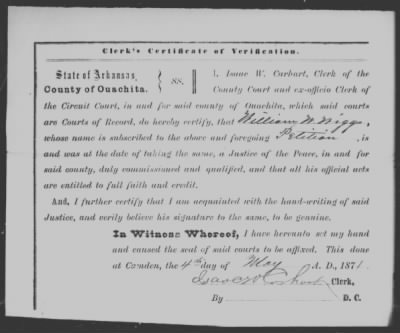 Clerk's Certificate of Verification.
State of Arkansas,
County of Ouachita.
ss.
I, Isaac W. Carhart, Clerk of the
County Court and ex-officio Clerk of
the Circuit Court, in and for said county of Ouachita, which said courts
are Courts of Record, do hereby certify, that William W. Wiggs,
whose name is subscribed to the above and foregoing Petition, is
and was at the date of taking the same, a Justice of the Peace, in and for
said county, duly commissioned and qualified, and that all his official acts
are entitled to full faith and credit.
And, I further certify that I am acquainted with the hand-writing of said
Justice, and verily believe his signature to the same, to be genuine.
In Witness Whereof, I have hereunto set my hand
and caused the seal of said courts to be affixed. This done
at Camden, the 4th day of May A. D., 1871.
Isaac W Carhart Clerk,
By D. C.